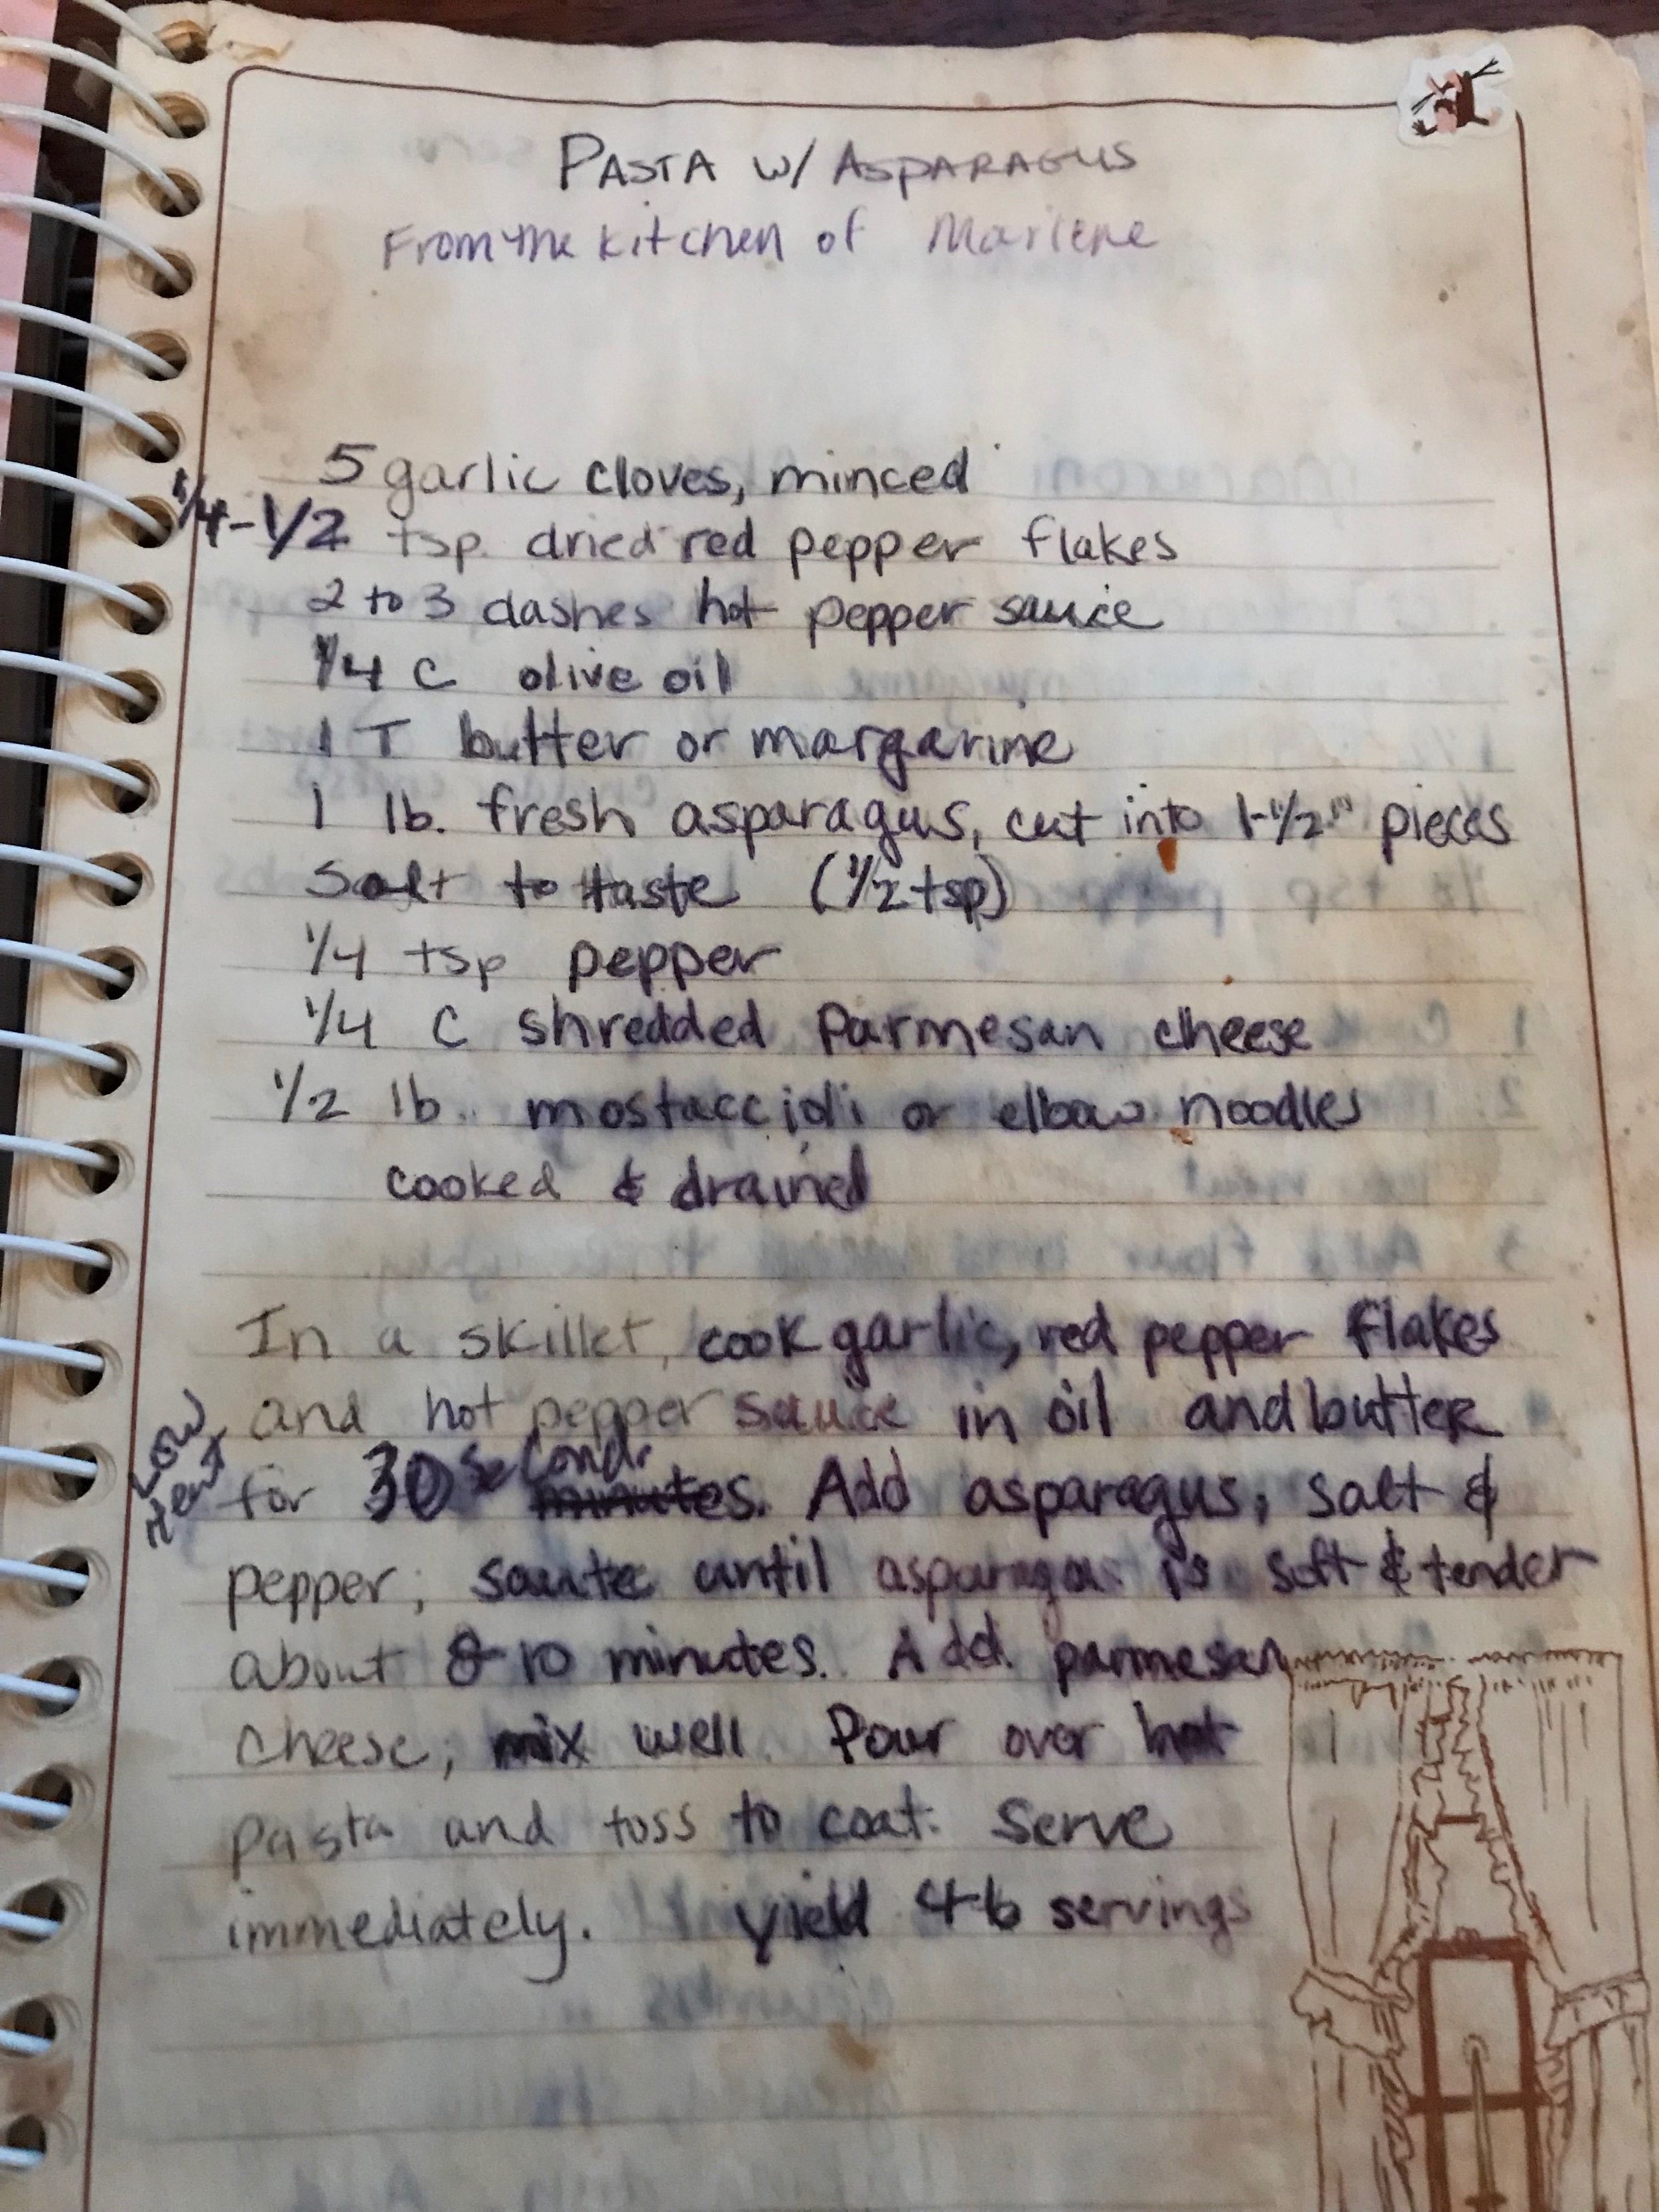 PASTA W/ ASPARAGUS
From the kitchen of Marlene
5 garlic cloves, minced
1/4-1/2 tsp. dried red pepper flakes
2 to 3 dashes hot pepper sauce
1/4 C olive oil
1 T butter or margarine
1 lb. fresh asparagus, cut into 1-1/2" pieces
Salt to taste (1/2 tsp)
1/4 tsp pepper
1/4 C shredded Parmesan cheese
1/2 lb. mostaccioli or elbow noodles
cooked & drained
In a skillet, cook garlic, red pepper flakes
and hot pepper sauce in oil and butter
Low Heat
for 30 seconds minutes. Add asparagus, salt &
pepper; saute until asparagus is soft & tender
about 8-10 minutes. Add parmesan
cheese; mix well. Pour over hot
pasta and toss to coat. Serve
immediately. Yield 4-6 servings